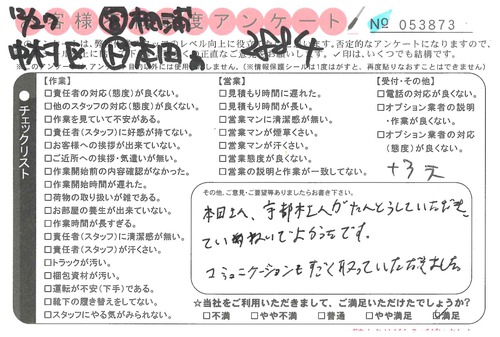 12/27
お客様満足度アンケート
No 053873
中村区
本田
※このアンケートは、
【作業】
□責任者の対応(態度)が良くない。
□他のスタッフの対応(態度)が良くない。
□作業を見ていて不安がある。
□責任者(スタッフ)に好感が持てない。
□お客様への挨拶が出来ていない。
□ご近所への挨拶・気遣いが無い。
□作業開始前の内容確認がなかった。
□作業開始時間が遅れた。
□荷物の取り扱いが雑である。
□お部屋の養生が出来ていない。
□作業時間が長すぎる。
□責任者(スタッフ)に清潔感が無い。
□責任者(スタッフ)が汗くさい。
□トラックが汚い。
□梱包資材が汚い。
□運転が不安(下手)である。
□靴下の履き替えをしてない。
□スタッフにやる気がみられない。
【営業】
□見積もり時間に遅れた。
□見積もり時間が長い。
□営業マンに清潔感が無い。
□営業マンが煙草くさい。
□営業マンが汗くさい。
□営業態度が良くない。
□営業の説明と作業が一致してない。
【受付・その他】
□電話の対応が良くない。
□オプション業者の説明
・作業が良くない。
□オプション業者の対応
(態度)が良くない。
チェックリスト
その他、ご意見・ご要望等ありましたらお書き下さい。
本田さん、宇都木さんがたんとうしていただき
ていねいでよかったです。
コミュニケーションもすごく取っていただきました。
☆当社をご利用いただきまして、ご満足いただけてでしょうか?
□不満 □やや不満 □普通 □やや満足 □満足